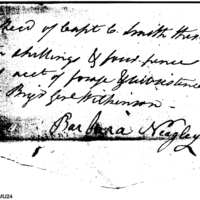 Recd of Capt C. Smith three
shillings & four pence
acct of forage & subsistence
Brigr Genl Wilkinson
Barbara Neagley
MU24